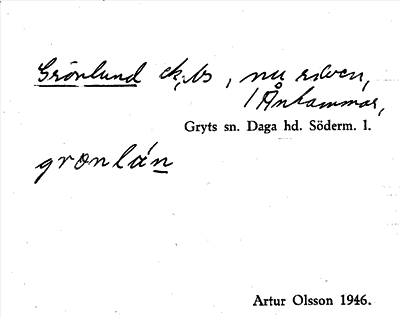 Grönlund ck, ls, nu riven,
/ Ånhammar,
Gryts sn. Daga hd. Söderm. l.
grønlán
Artur Olsson 1946.